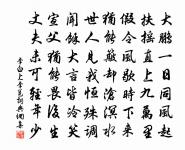 大鵬一日同風起
扶搖直上九萬里
假令風歇時下來
猶能簸卻滄溟水
世人見我恆殊調
聞余大言皆冷笑
宣父猶能畏後生
丈夫未可輕年少
李白上李邕詞典網書